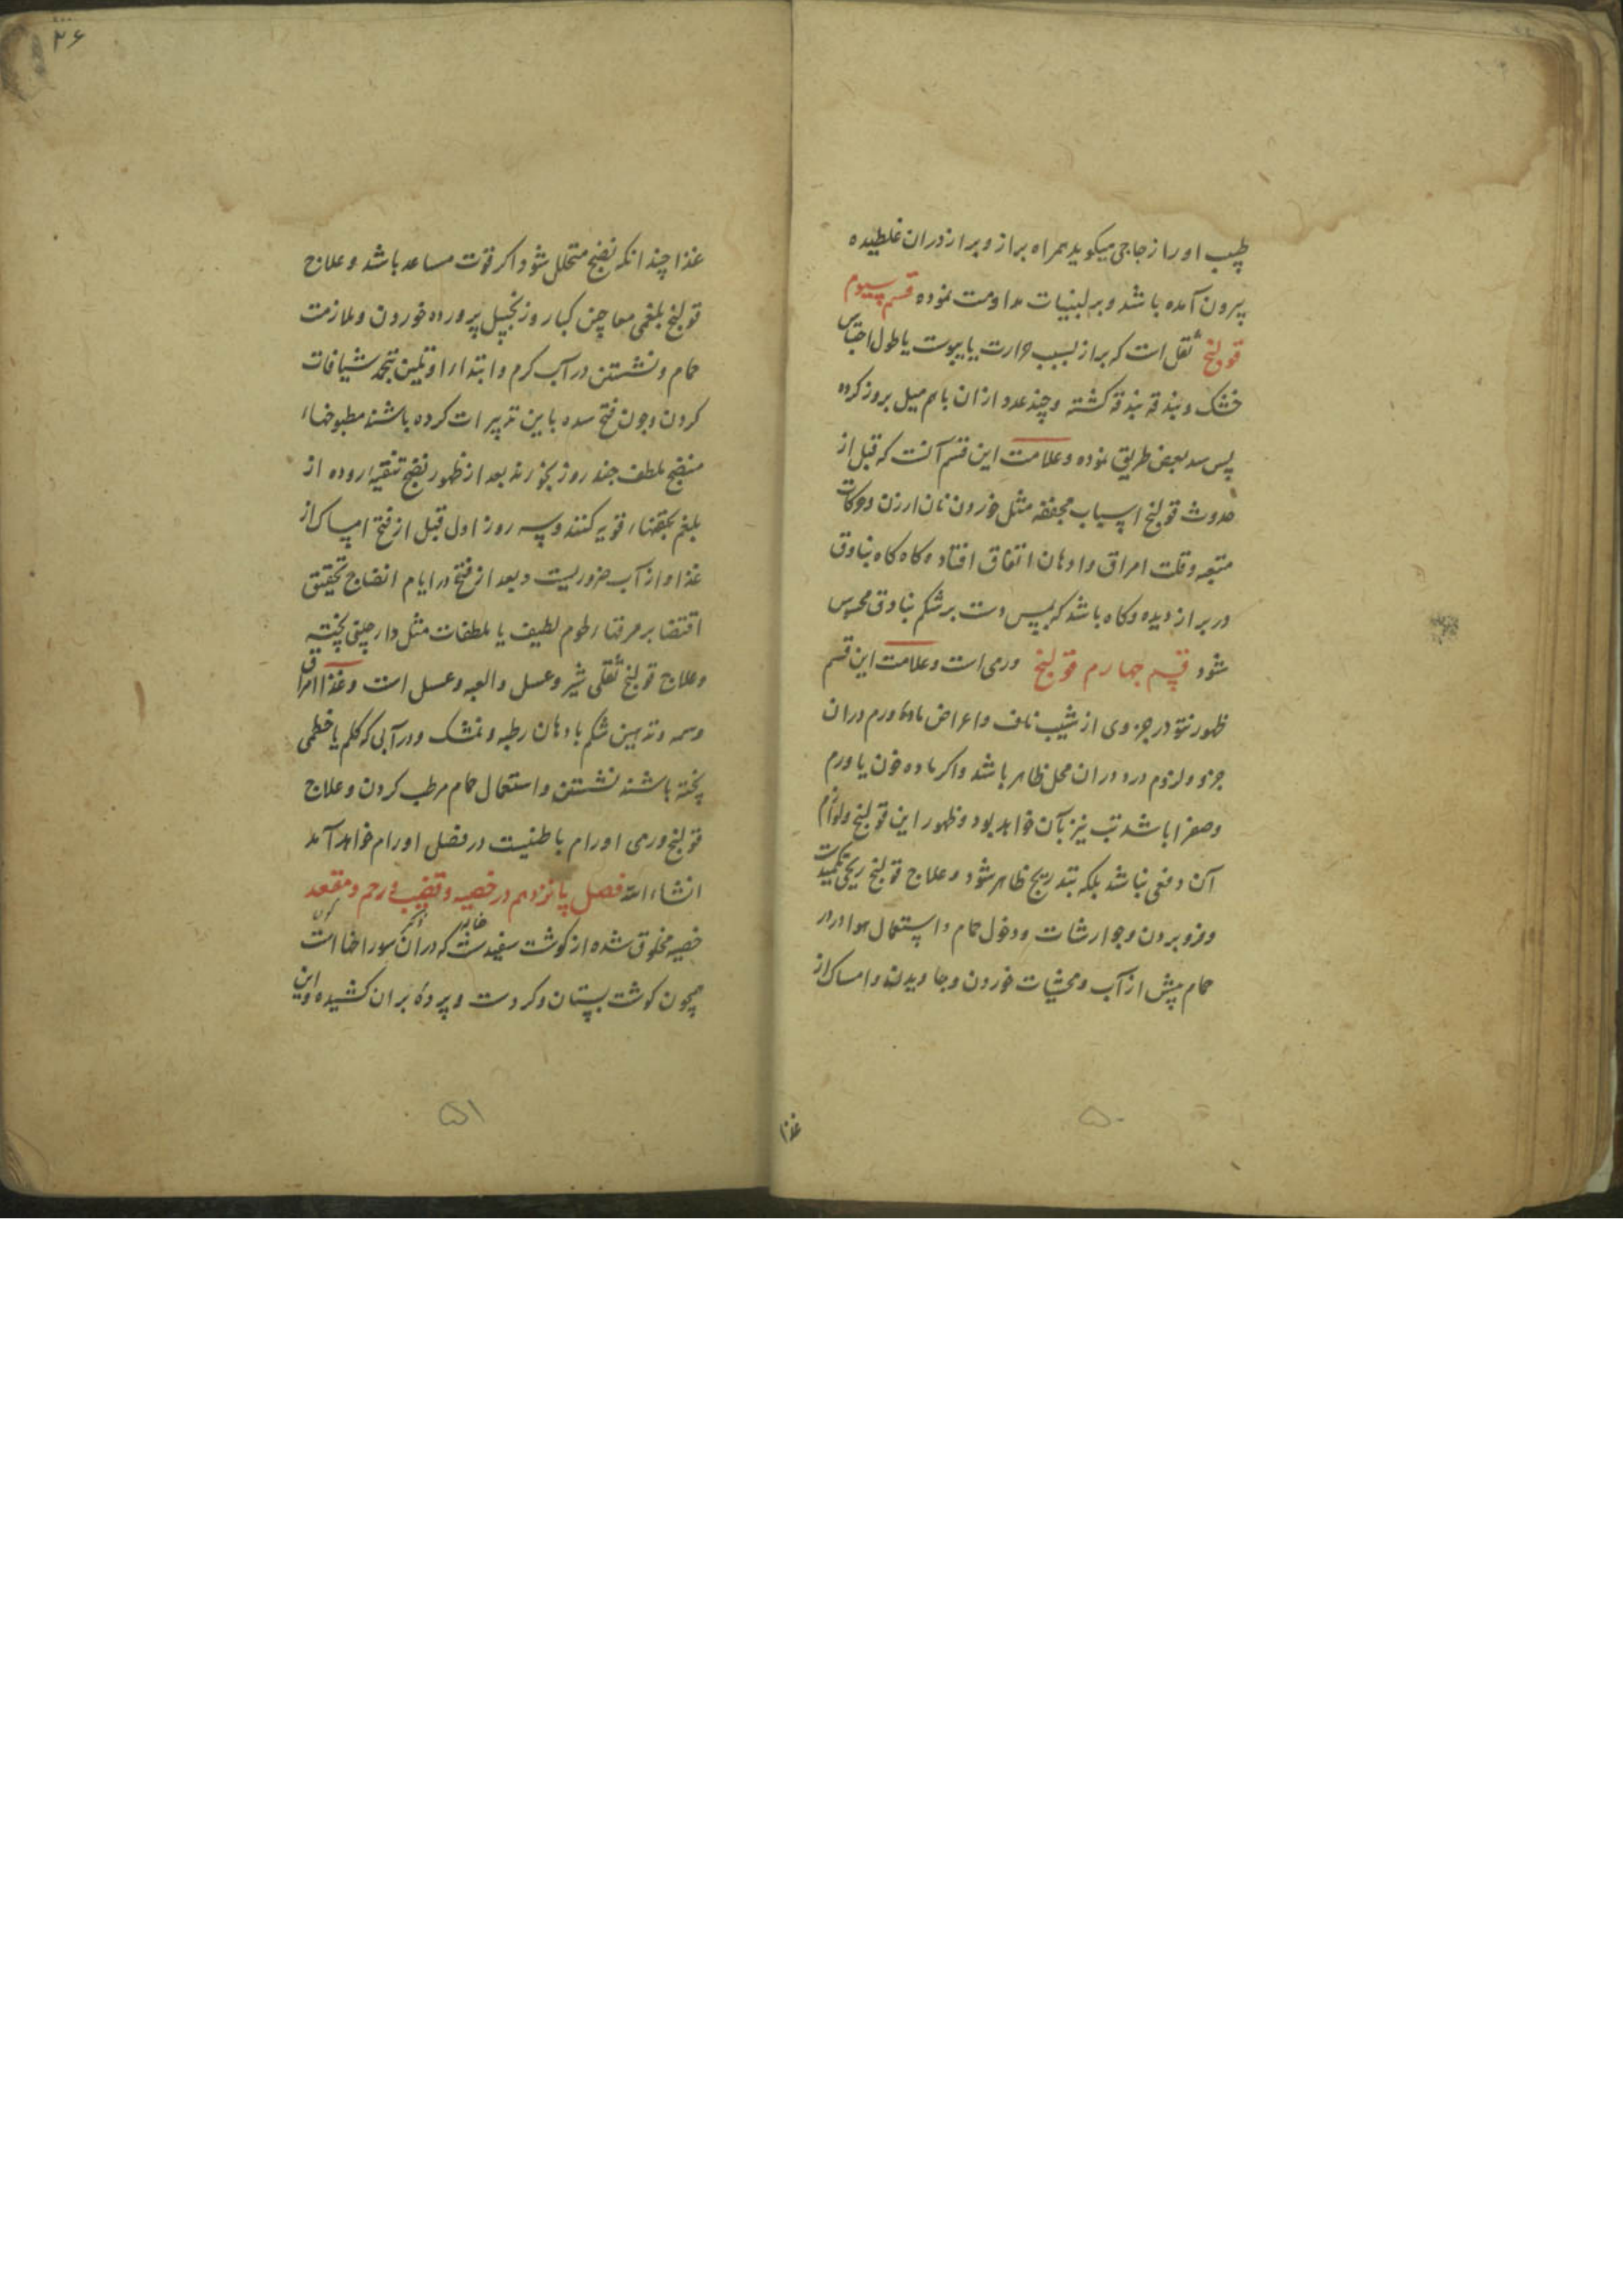 طبیب اورا زجاجی میکوید همراه براز و براز دران غلطیده
بیرون آمده باشد و بر لبنیات مداومت نموده قسم سیوم
قولنج ثقل است که براز بسبب حرارت یا یبوست یا طول احتباس
خشک و بندقه بندقه کشته و چند عدد ازان باهم میل بروز کرده
پس سد بعض طریق نموده و علامت این قسم آنست که قبل از
حدوث قولنج اسباب مجففه مثل خوردن نان ارزن و حرکات
متعبه و قلت امراق و ادهان اتفاق افتاد و کاه کاه بنادق
در براز دیده و کاه باشد که بلمس دست بر شکم بنادق محسوس
شود قسم چهارم قولنج ورمی است و علامت این قسم
ظهور نتو در جزوی از شیب ناف و اعراض ماده ورم دران
جزو و لزوم درد دران محل ظاهر باشد و اکر ماده خون یا ورم
و صفرا باشد تب نیز بآن خواهد بود و ظهور این قولنج و لوازم
آن دفعی نباشد بلکه بتدریج ظاهر شود و علاج قولنج ریحی تکمیدات
و فرو بردن جوارشات و دخول حمام و استعمال هوا در
حمام پیش از آب و محشیات خوردن و جاویدن و امساک از
غذا
۵۰
۲۶
غذا چندانکه نضج متحلل شود اکر قوت مساعد باشد و علاج
قولنج بلغمی معاجین کبار و زنجبیل پرورده خوردن و ملازمت
حمام و نشستن در آب کرم و ابتداء او تلیین بتحمد شیافات
کردن و چون فتح سده باین تدبیرات کرده باشند مطبوخهاء
منضج ملطف چند روز بخورند بعد از ظهور نضج تنقیهٔ روده از
بلغم بحقنهاء قویه کنند و سه روز اول قبل از فتح امساک از
غذا و از آب ضروریست و بعد از فتح در ایام انضاج تحقیق
اقتضا بر مرقهاء طوم لطیف با ملطفات مثل دارچینی پخته
و علاج قولنج ثقلی شیر و عسل و العبه و عسل است و غذا امراق
دسمه و تدهین شکم بادهان رطبه و نمشک و در آبی که کلم یا خطمی
پخته باشند نشستن و استعمال حمام مرطب کردن و علاج
قولنج ورمی اورام باطنیست در فصل اورام خواهد آمد
انشاء الله فصل پانزدهم در خصیه و قضیب و رحم و مقعد
خصیه مخلوق شده از کوشت سفید ست که دران سوراخها است
همچون کوشت پستان و کردست و پردهٔ بران کشیده و این
۵۱